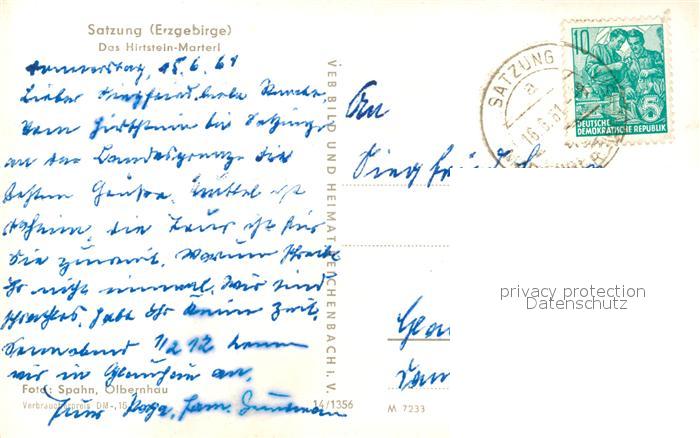 Satzung (Erzgebirge)
Das Hirtstein-Marterl
Donnerstag, 15.6.61
Lieber Siegfried, liebe
Vom Hirtstein bei Satzung
an der Landesgrenze die
besten Grüße. Mittel ist
daheim, die Tour ist für
Sie zu weit. Warum schreibt
Ihr nicht einmal. Wir sind
schreiblos, habt Ihr keine Zeit.
Sonnabend 1/2 12 kommen
wir in Glauchau an.
Foto: Spahn, Olbernhau
Verbraucherpreis DM -,15
Euer Papa, Fam.
VEB BILD UND HEIMAT REICHENBACH i. V.
14/1356
M 7233
An
Siegfried
SATZUNG
a
16.6.61
10
DEUTSCHE
DEMOKRATISCHE REPUBLIK
5
privacy protection
Datenschutz